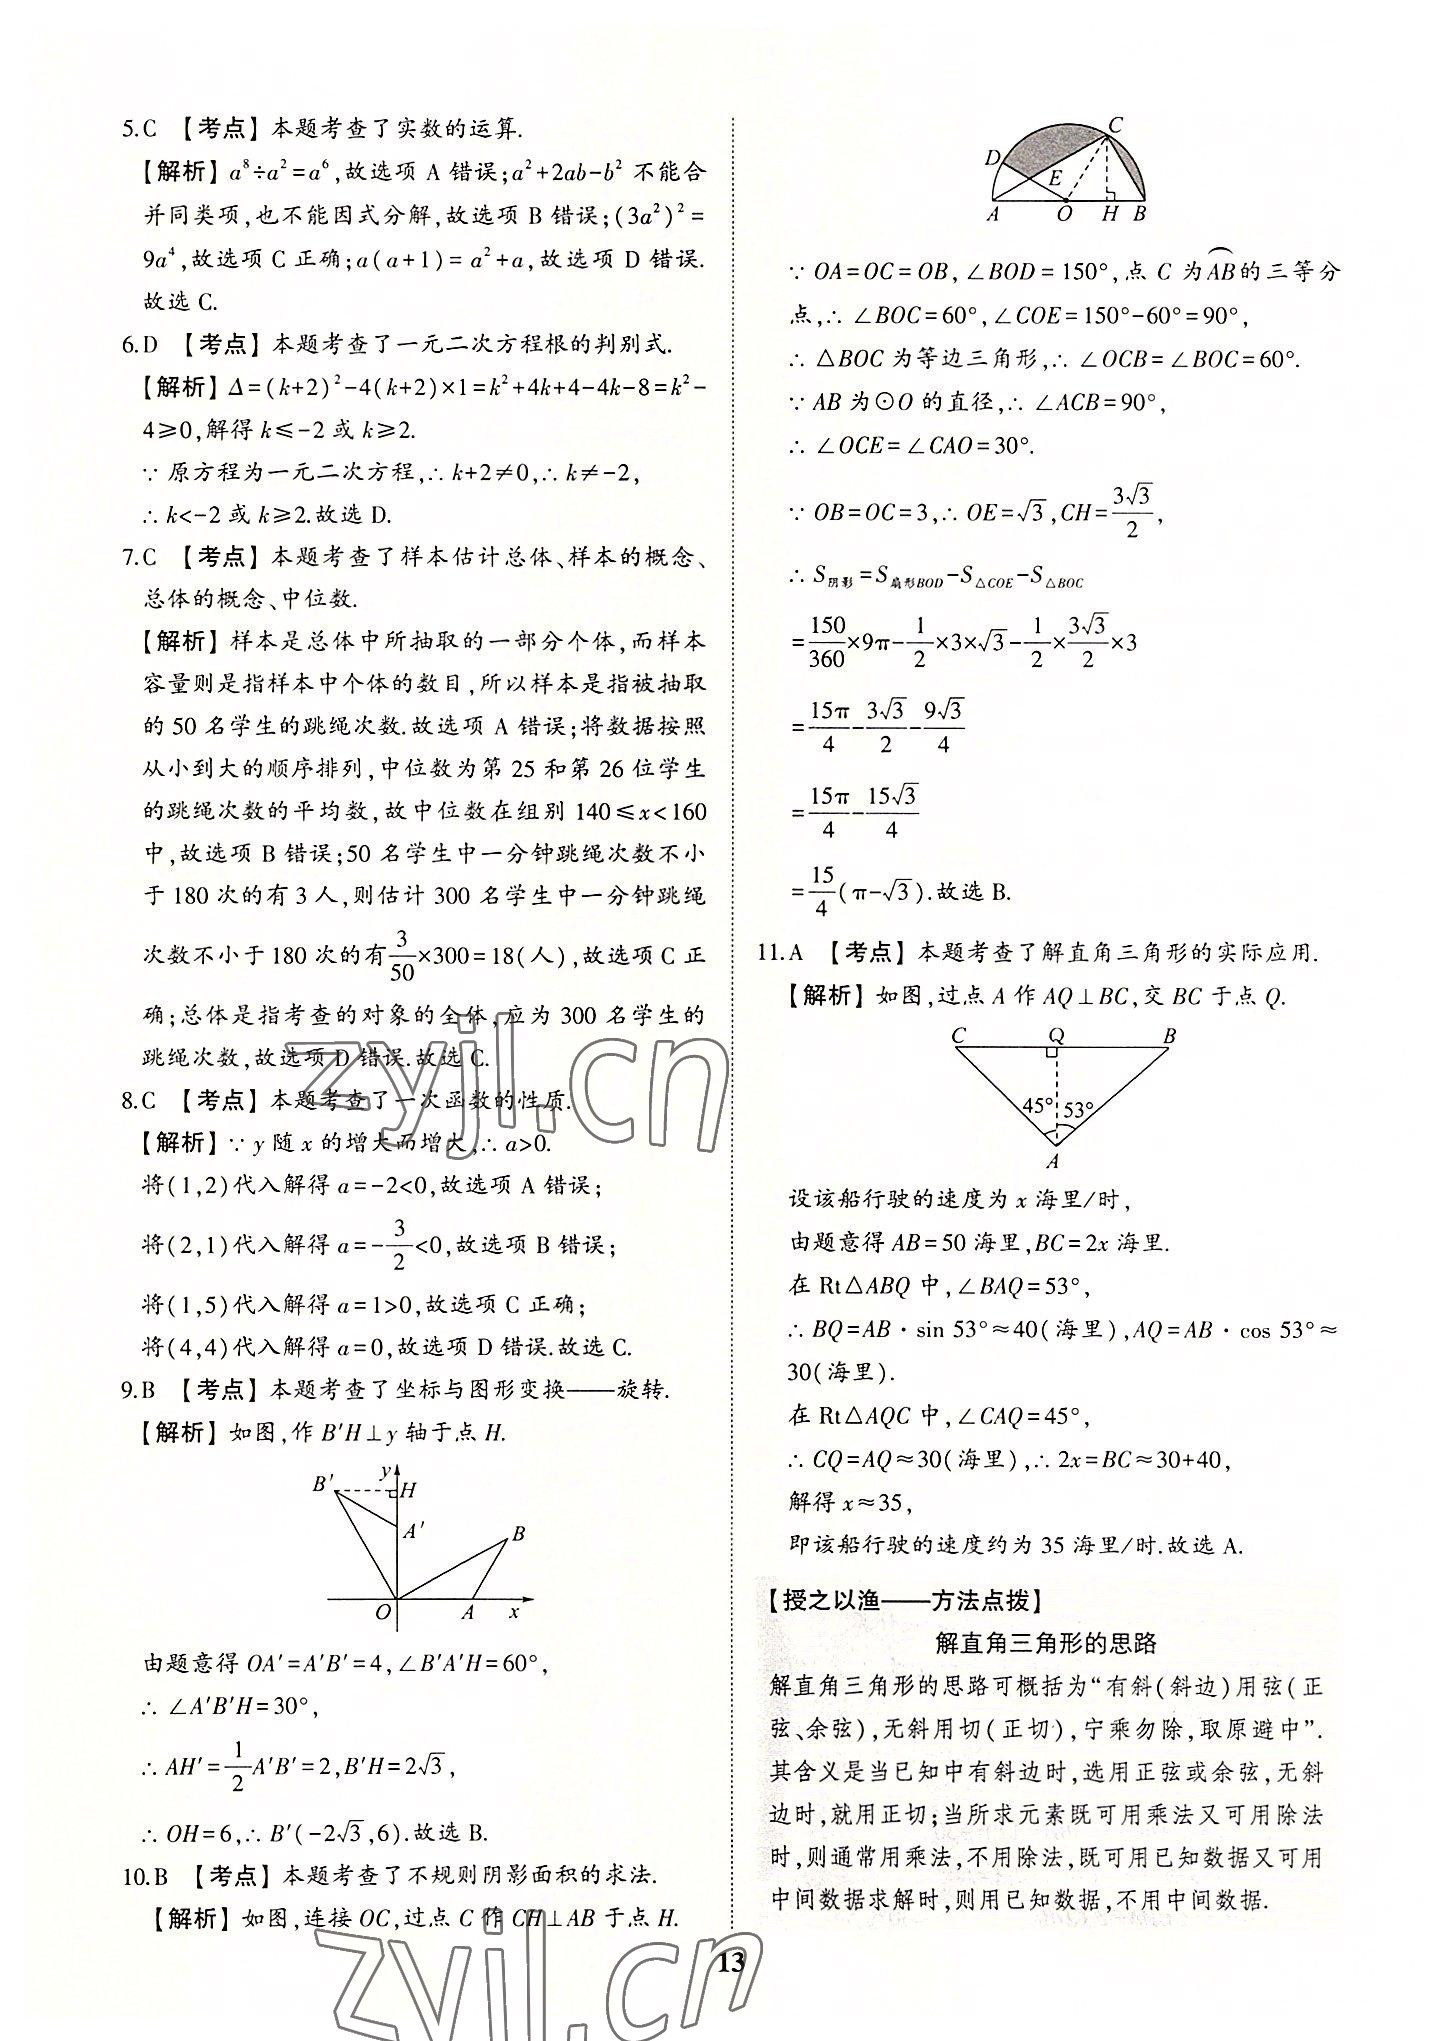 5.C 【考点】本题考查了实数的运算.
【解析】a⁸÷a²=a⁶,故选项 A 错误;a²+2ab-b² 不能合
并同类项,也不能因式分解,故选项 B 错误;(3a²)²=
9a⁴,故选项 C 正确;a(a+1)=a²+a,故选项 D 错误.
故选 C.
6.D 【考点】本题考查了一元二次方程根的判别式.
【解析】Δ=(k+2)²-4(k+2)×1=k²+4k+4-4k-8=k²-
4≥0,解得 k≤-2 或 k≥2.
∵ 原方程为一元二次方程,∴ k+2≠0,∴ k≠-2,
∴ k<-2 或 k≥2.故选 D.
7.C 【考点】本题考查了样本估计总体、样本的概念、
总体的概念、中位数.
【解析】样本是总体中所抽取的一部分个体,而样本
容量则是指样本中个体的数目,所以样本是指被抽取
的 50 名学生的跳绳次数.故选项 A 错误;将数据按照
从小到大的顺序排列,中位数为第 25 和第 26 位学生
的跳绳次数的平均数,故中位数在组别 140≤x<160
中,故选项 B 错误;50 名学生中一分钟跳绳次数不小
于 180 次的有 3 人,则估计 300 名学生中一分钟跳绳
次数不小于 180 次的有3/50×300=18(人),故选项 C 正
确;总体是指考查的对象的全体,应为 300 名学生的
跳绳次数,故选项 D 错误.故选 C.
8.C 【考点】本题考查了一次函数的性质.
【解析】∵ y 随 x 的增大而增大,∴ a>0.
将(1,2)代入解得 a=-2<0,故选项 A 错误;
将(2,1)代入解得 a=-3/2<0,故选项 B 错误;
将(1,5)代入解得 a=1>0,故选项 C 正确;
将(4,4)代入解得 a=0,故选项 D 错误.故选 C.
9.B 【考点】本题考查了坐标与图形变换——旋转.
【解析】如图,作 B′H⊥y 轴于点 H.
y
B′
H
A′
B
O
A
x
由题意得 OA′=A′B′=4,∠B′A′H=60°,
∴ ∠A′B′H=30°,
∴ AH′=1/2A′B′=2,B′H=2√3,
∴ OH=6,∴ B′(-2√3,6).故选 B.
10.B 【考点】本题考查了不规则阴影面积的求法.
【解析】如图,连接 OC,过点 C 作 CH⊥AB 于点 H.
C
D
E
A
O
H
B
∵ OA=OC=OB,∠BOD=150°,点 C 为⌒AB的三等分
点,∴ ∠BOC=60°,∠COE=150°-60°=90°,
∴ △BOC 为等边三角形,∴ ∠OCB=∠BOC=60°.
∵ AB 为⊙O 的直径,∴ ∠ACB=90°,
∴ ∠OCE=∠CAO=30°.
∵ OB=OC=3,∴ OE=√3,CH=3√3/2,
∴ S阴影=S扇形BOD-S△COE-S△BOC
=150/360×9π-1/2×3×√3-1/2×3√3/2×3
=15π/4-3√3/2-9√3/4
=15π/4-15√3/4
=15/4(π-√3).故选 B.
11.A 【考点】本题考查了解直角三角形的实际应用.
【解析】如图,过点 A 作 AQ⊥BC,交 BC 于点 Q.
C
Q
B
45°
53°
A
设该船行驶的速度为 x 海里/时,
由题意得 AB=50 海里,BC=2x 海里.
在 Rt△ABQ 中,∠BAQ=53°,
∴ BQ=AB·sin 53°≈40(海里),AQ=AB·cos 53°≈
30(海里).
在 Rt△AQC 中,∠CAQ=45°,
∴ CQ=AQ≈30(海里),∴ 2x=BC≈30+40,
解得 x≈35,
即该船行驶的速度约为 35 海里/时.故选 A.
【授之以渔——方法点拨】
解直角三角形的思路
解直角三角形的思路可概括为“有斜(斜边)用弦(正
弦、余弦),无斜用切(正切),宁乘勿除,取原避中”.
其含义是当已知中有斜边时,选用正弦或余弦,无斜
边时,就用正切;当所求元素既可用乘法又可用除法
时,则通常用乘法,不用除法,既可用已知数据又可用
中间数据求解时,则用已知数据,不用中间数据.
13
zyjl.cn
zyjl.cn